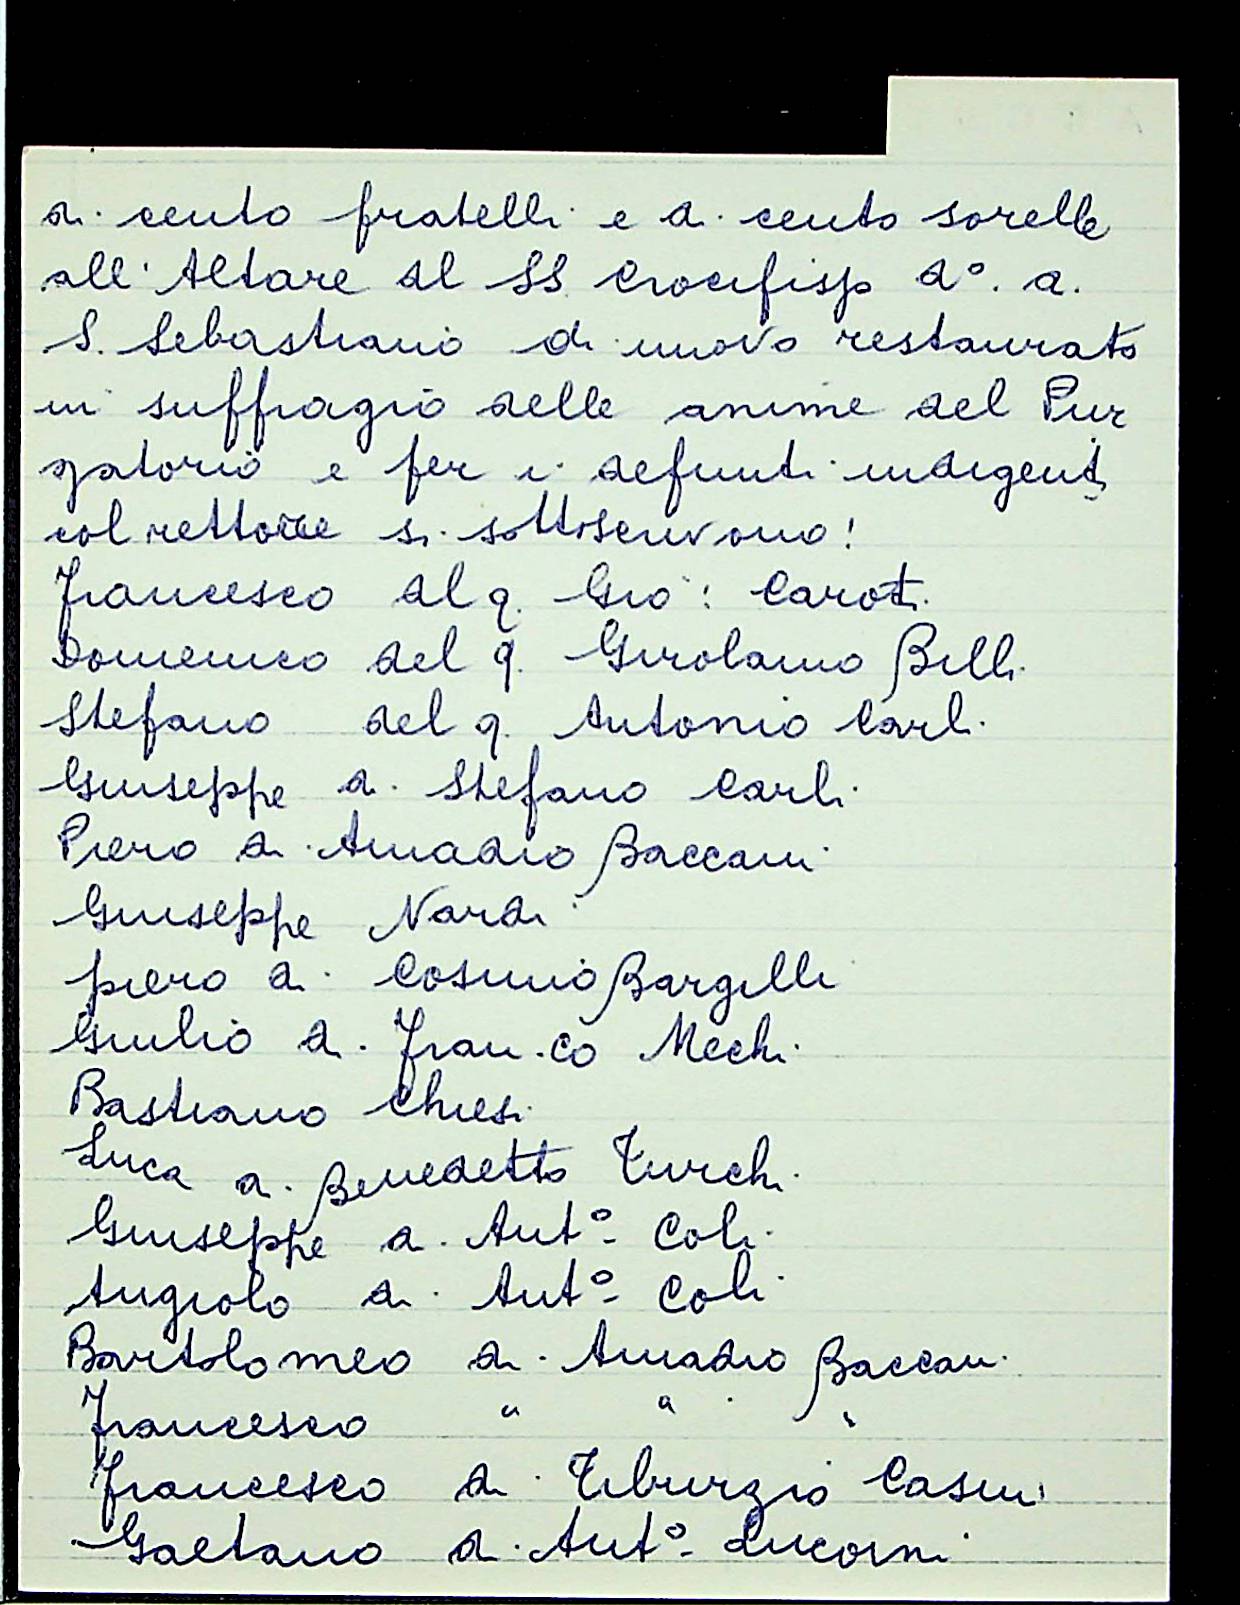 di cento fratelli e di cento sorelle
all'Altare del SS. Crocifisso d°. a.
S. Sebastiano di nuovo restaurato
in suffragio delle anime del Pur
gatorio e per i defunti indigenti
col rettore si sottoscrivono!
Francesco del q. Gio: Caroti
Domenico del q. Girolamo Billi
Stefano del q. Antonio Carli
Giuseppe di Stefano Carli
Piero di Amadio Baccani
Giuseppe Nardi
piero di Cosimo Bargilli
Giulio di Fran.co Mechi
Bastiano Chiesi
Luca di Benedetto Turchi
Giuseppe di Ant° Coli
Angiolo di Ant° Coli
Bartolomeo di Amadio Baccani
Francesco " " "
Francesco di Tiburzio Casini
Gaetano di Ant°